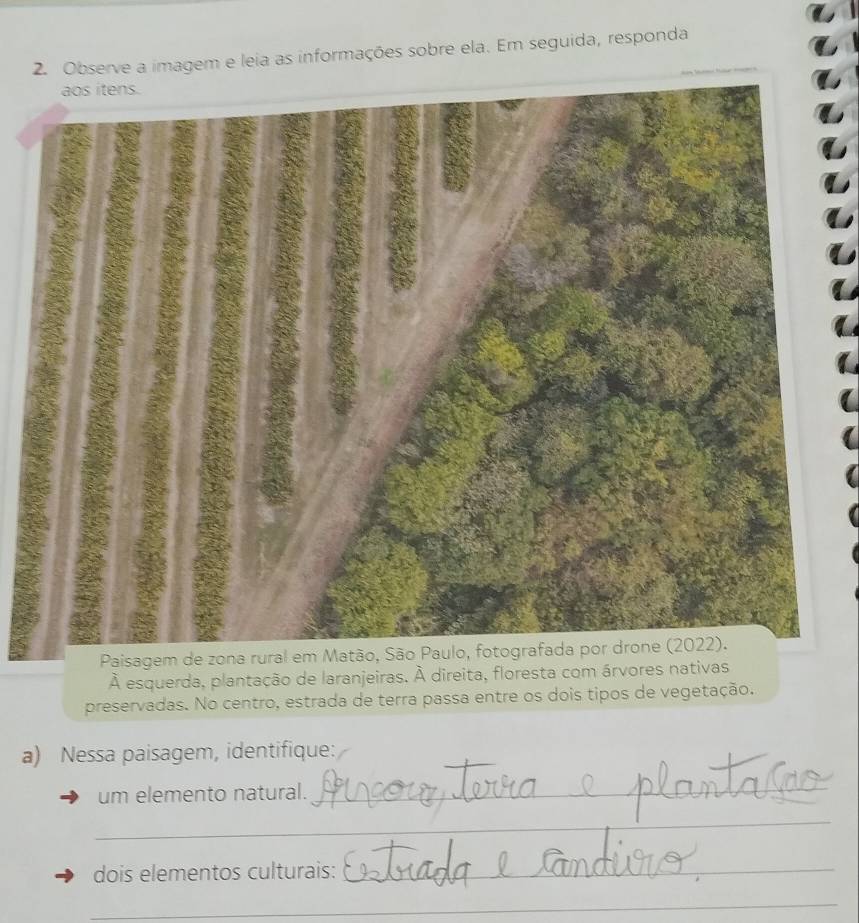 2. Observe a imagem e leia as informações sobre ela. Em seguida, responda
aos itens.
Paisagem de zona rural em Matão, São Paulo, fotografada por drone (2022).
À esquerda, plantação de laranjeiras. À direita, floresta com árvores nativas
preservadas. No centro, estrada de terra passa entre os dois tipos de vegetação.
a) Nessa paisagem, identifique:
➜ um elemento natural. terra e plantasão
➜ dois elementos culturais: Estrada e